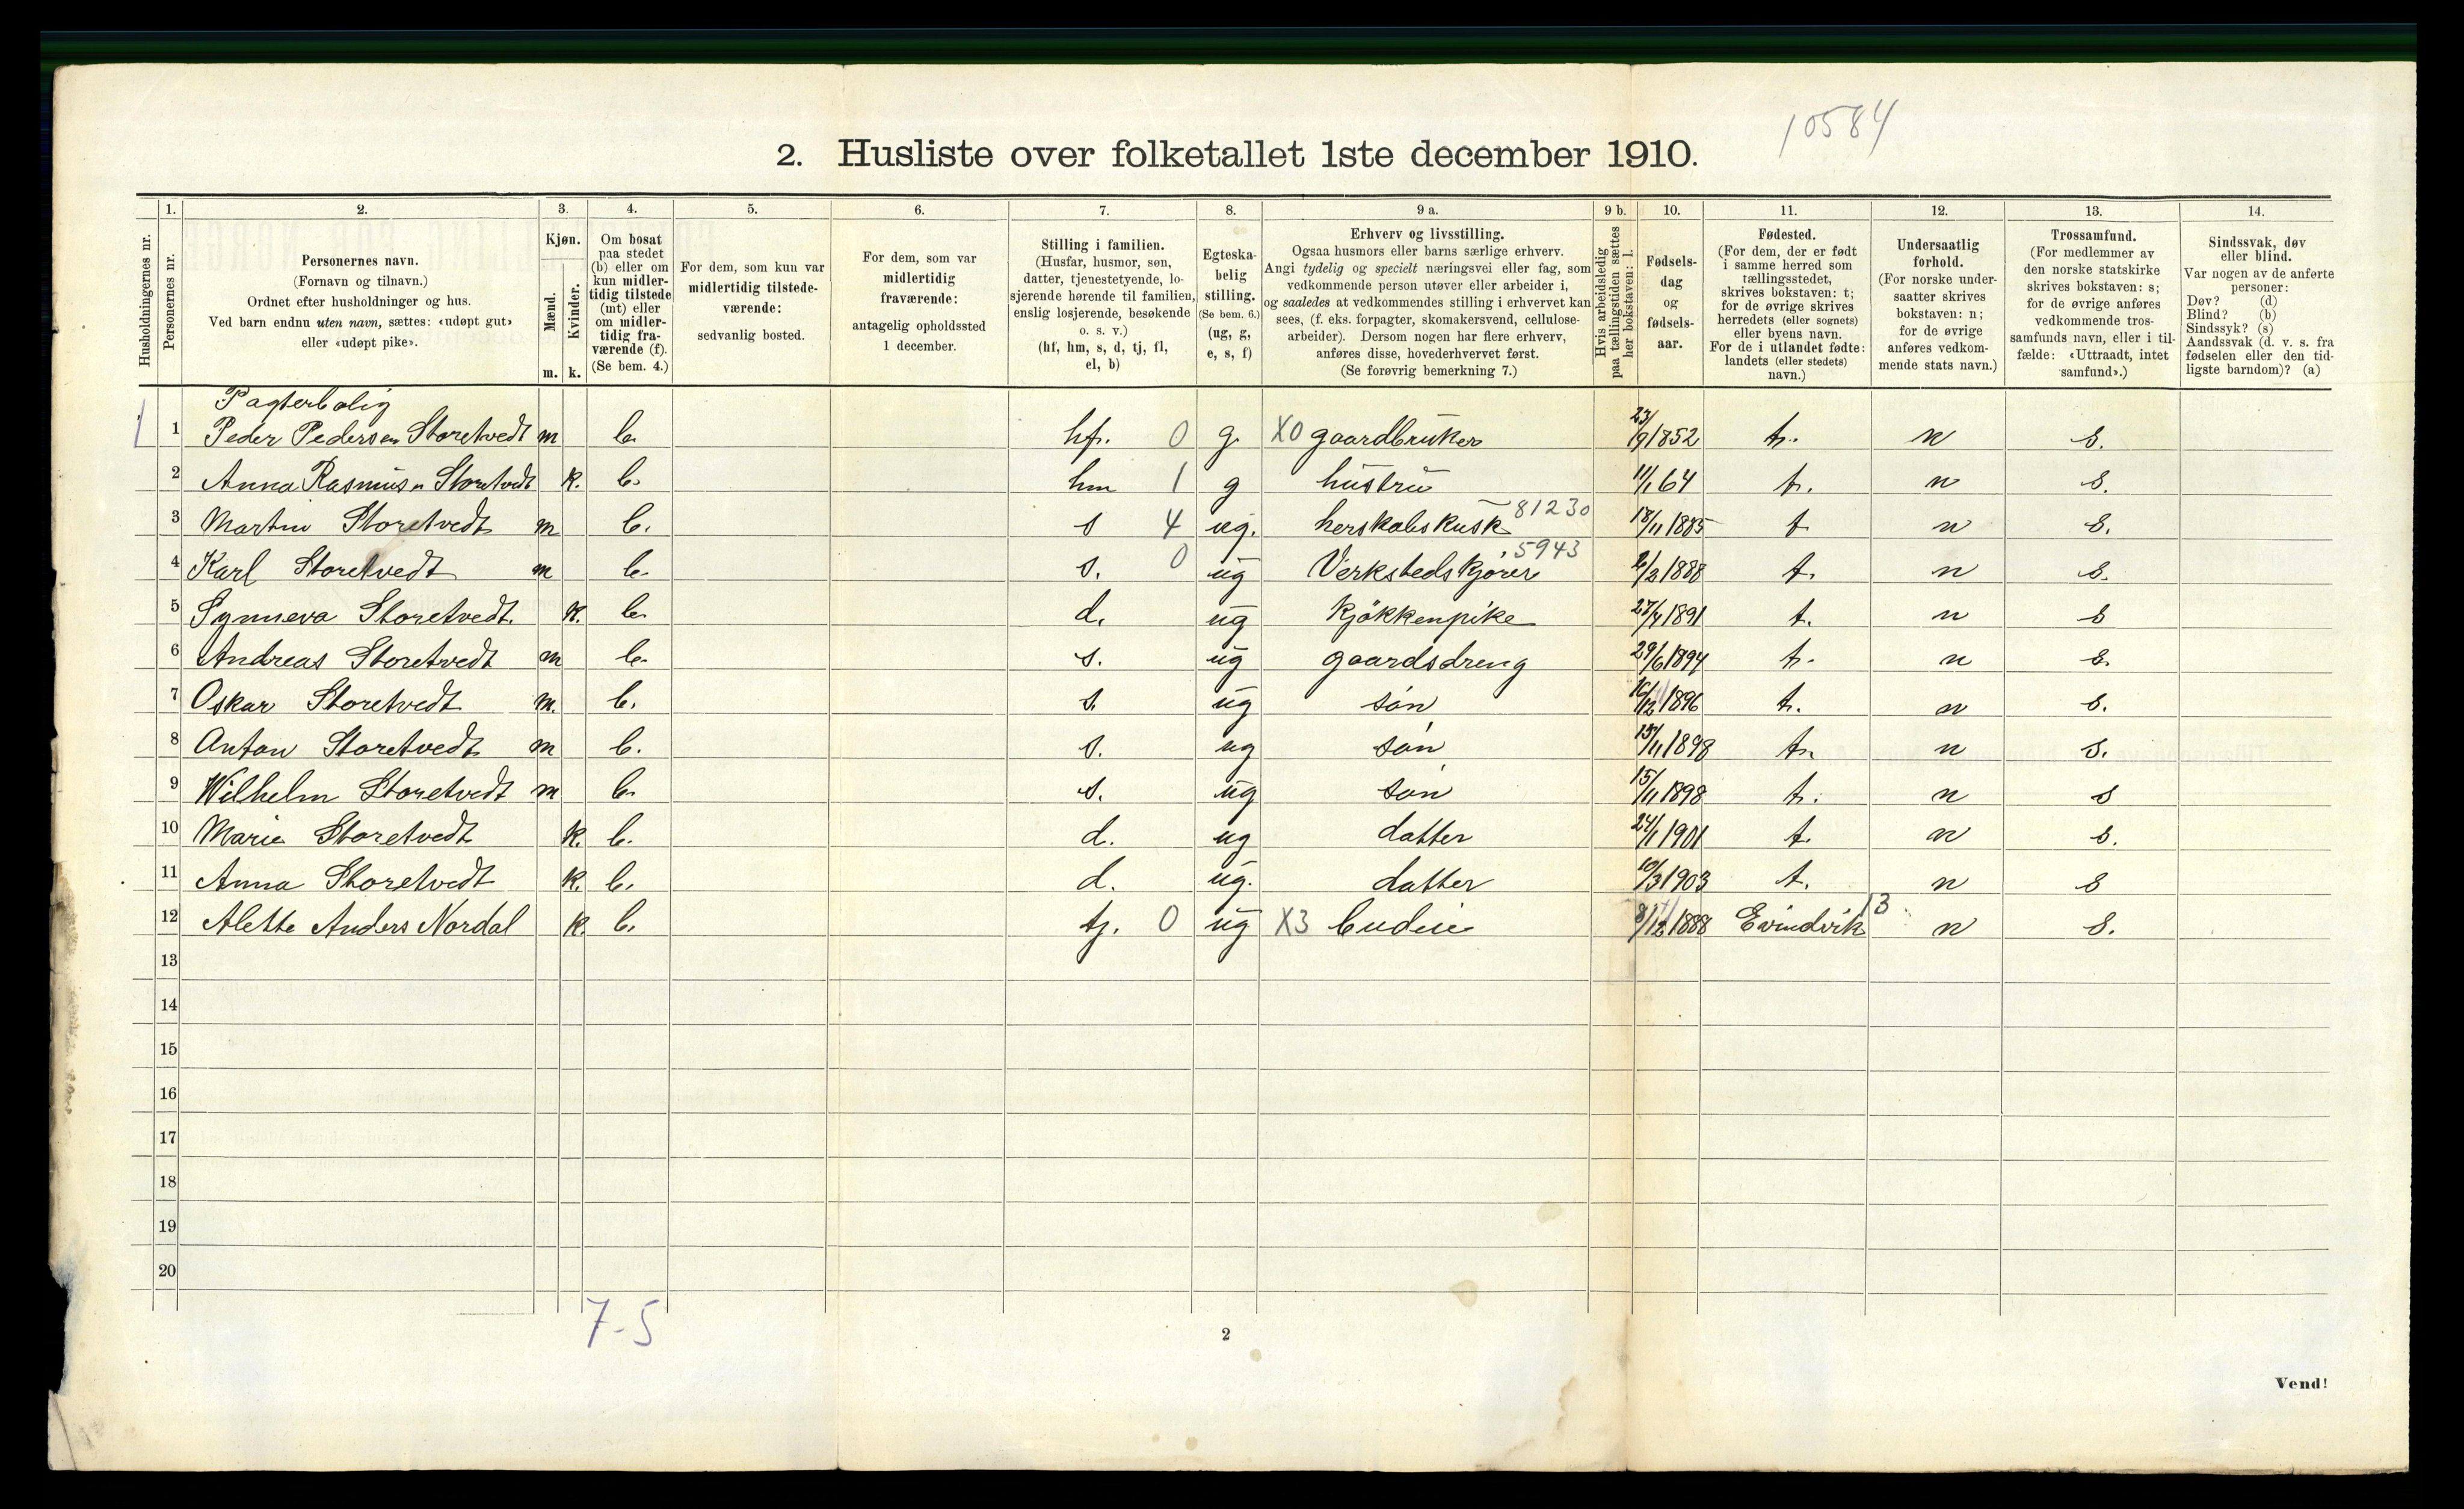 10584
2. Husliste over folketallet 1ste december 1910.
1. 2. 3. 4. 5. 6. 7. 8. 9 a. 9 b. 10. 11. 12. 13. 14.
Husholdningernes nr.
Personernes nr.
Personernes navn.
(Fornavn og tilnavn.)
Ordnet efter husholdninger og hus.
Ved barn endnu uten navn, sættes: «udøpt gut»
eller «udøpt pike».
Kjøn.
Mænd.
Kvinder.
m. k.
Om bosat
paa stedet
(b) eller om
kun midler-
tidig tilstede
(mt) eller
om midler-
tidig fra-
værende (f).
(Se bem. 4.)
For dem, som kun var
midlertidig tilstede-
værende:
sedvanlig bosted.
For dem, som var
midlertidig
fraværende:
antagelig opholdssted
1 december.
Stilling i familien.
(Husfar, husmor, søn,
datter, tjenestetyende, lo-
sjerende hørende til familien,
enslig losjerende, besøkende
o. s. v.)
(hf, hm, s, d, tj, fl,
el, b)
Egteska-
belig
stilling.
(Se bem. 6.)
(ug, g,
e, s, f)
Erhverv og livsstilling.
Ogsaa husmors eller barns særlige erhverv.
Angi tydelig og specielt næringsvei eller fag, som
vedkommende person utøver eller arbeider i,
og saaledes at vedkommendes stilling i erhvervet kan
sees, (f. eks. forpagter, skomakersvend, cellulose-
arbeider). Dersom nogen har flere erhverv,
anføres disse, hovederhvervet først.
(Se forøvrig bemerkning 7.)
Hvis arbeidsledig
paa tællingstiden sættes
her bokstaven: l.
Fødsels-
dag
og
fødsels-
aar.
Fødested.
(For dem, der er født
i samme herred som
tællingsstedet,
skrives bokstaven: t;
for de øvrige skrives
herredets (eller sognets)
eller byens navn.
For de i utlandet fødte:
landets (eller stedets)
navn.)
Undersaatlig
forhold.
(For norske under-
saatter skrives
bokstaven: n;
for de øvrige
anføres vedkom-
mende stats navn.)
Trossamfund.
(For medlemmer av
den norske statskirke
skrives bokstaven: s;
for de øvrige anføres
vedkommende tros-
samfunds navn, eller i til-
fælde: «Uttraadt, intet
samfund».)
Sindssvak, døv
eller blind.
Var nogen av de anførte
personer:
Døv? (d)
Blind? (b)
Sindssyk? (s)
Aandssvak (d. v. s. fra
fødselen eller den tid-
ligste barndom)? (a)
Pagterbolig
1 1 Peder Pedersen Storetvedt m b. hf. 0 g. X0 gaardbruker 23/9 1852 t. n s.
2 Anna Rasmusn Storetvedt k. b. hm 1 g hustru 11/1 64 t. n s.
3 Martin Storetvedt m b. s 4 ug. herskabskusk 81230 18/11 1885 t n s.
4 Karl Storetvedt m b. s. 0 ug Verkstedskjører 5943 /2 1888 t. n s.
5 Synneva Storetvedt. k. b. d. ug Kjökkenpike 27/4 1891 t. n s
6 Andreas Storetvedt m b. s. ug gaardsdreng 29/6 1894 t. n s.
7 Oskar Storetvedt m. b. s. ug søn 16/12 1896 t. n s.
8 Anton Storetvedt m b. s. ug søn 15/11 1898 t. n s.
9 Wilhelm Storetvedt m b. s. ug søn 15/11 1898 t. n s
10 Marie Storetvedt k. b. d. ug datter 24/1 1901 t. n s.
11 Anna Storetvedt k. b. d. ug. datter 10/3 1903 t. n s
12 Alette Anders Nordal k. b. tj. 0 ug X3 budeie 8/12 1888 Evindvik 13 n s.
13
14
15
16
17
18
19
20
7-5
2
Vend!